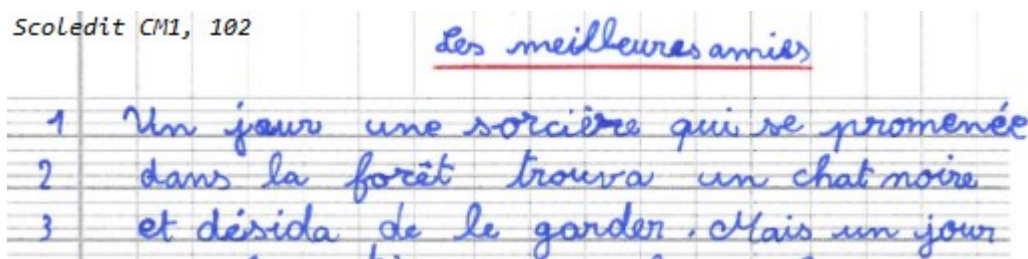 Scoledit CM1, 102
Les meilleures amies
1 Un jour une sorcière qui se promenée
2 dans la forêt trouva un chat noire
3 et désida de le garder. Mais un jour